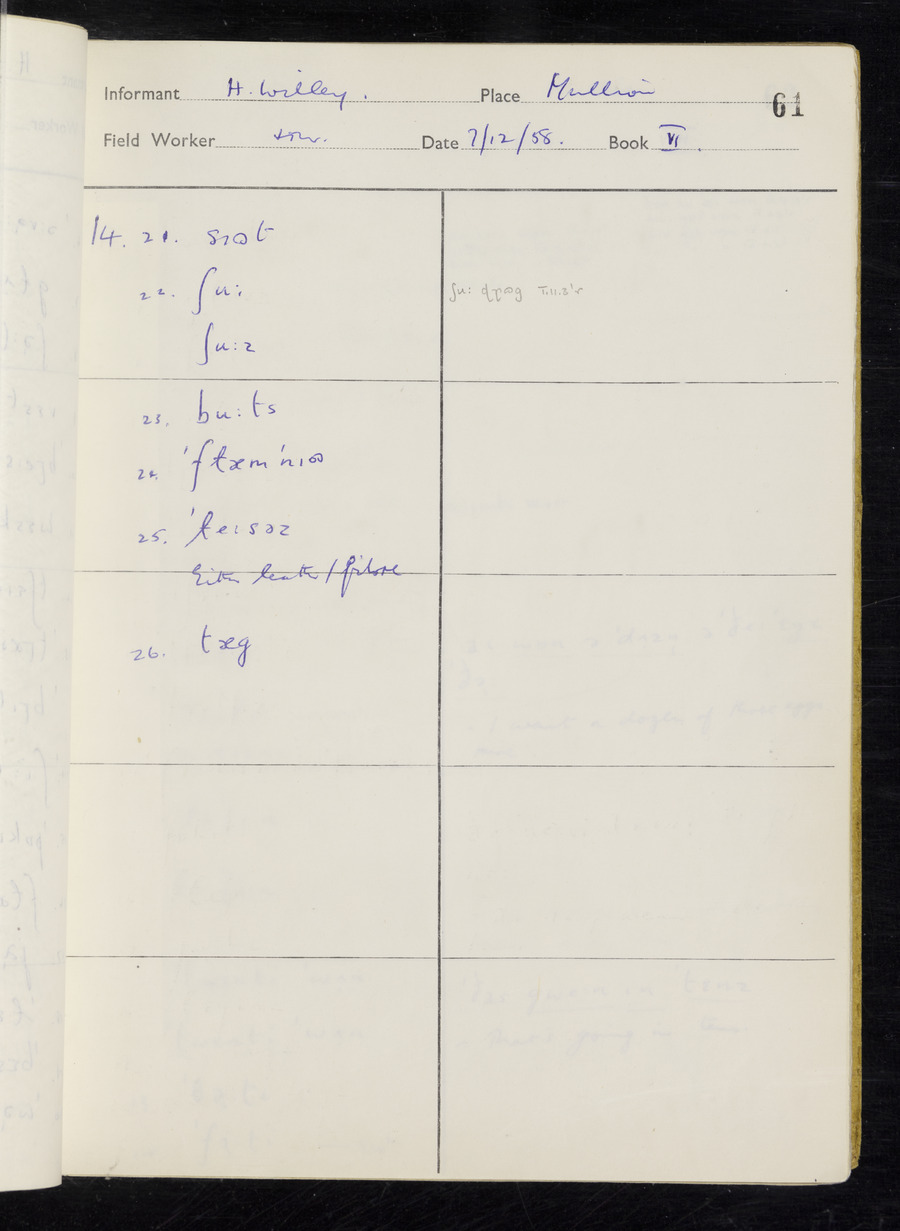 Informant H. Willey. Place Mullion 61
Field Worker Date 7/12/58. Book VI.
14. 21. sɪət
22. ʃu:
ʃu: T.11.3's
ʃu:z
23. bu:ts
24.
25. 'leɪsəz
Either leather / fibre
26. tæg